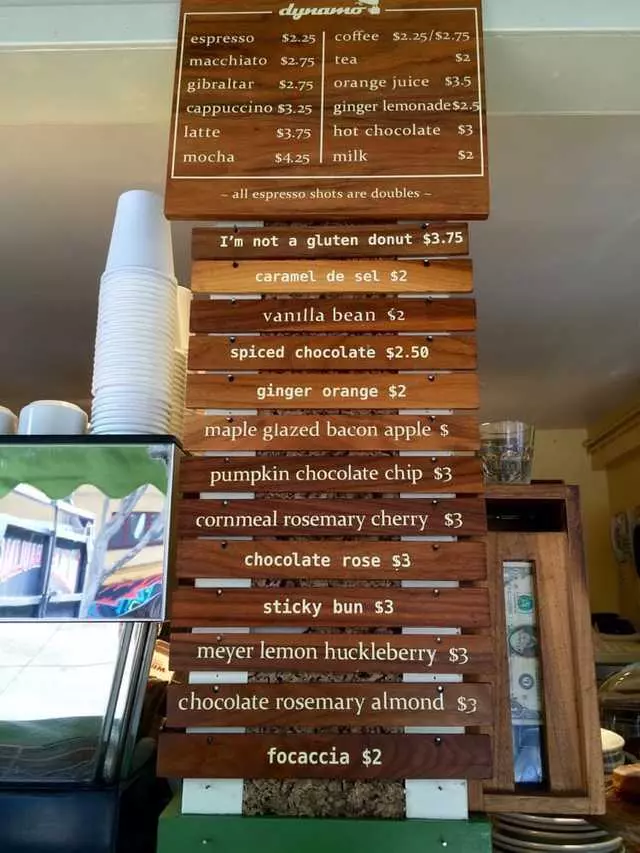 dynamo
espresso $2.25
macchiato $2.75
gibraltar $2.75
cappuccino $3.25
latte $3.75
mocha $4.25
coffee $2.25/$2.75
tea $2
orange juice $3.5
ginger lemonade $2.5
hot chocolate $3
milk $2
~ all espresso shots are doubles ~
I'm not a gluten donut $3.75
caramel de sel $2
vanilla bean $2
spiced chocolate $2.50
ginger orange $2
maple glazed bacon apple $
pumpkin chocolate chip $3
cornmeal rosemary cherry $3
chocolate rose $3
sticky bun $3
meyer lemon huckleberry $3
chocolate rosemary almond $3
focaccia $2